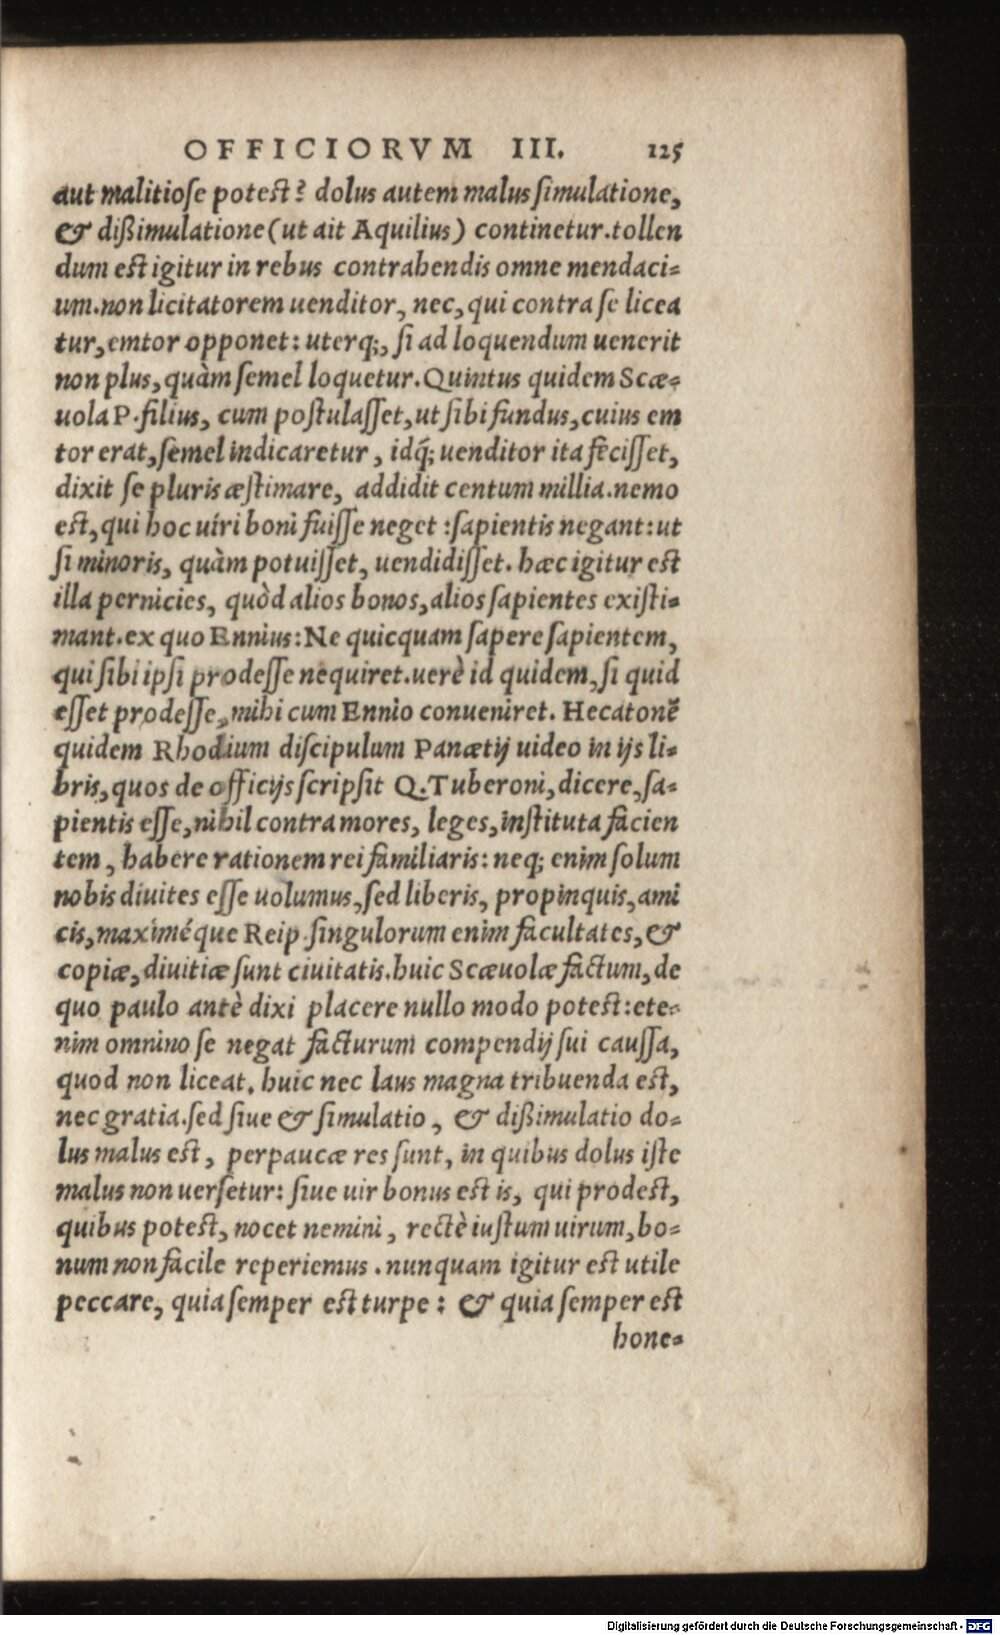 OFFICIORVM III. 125
aut malitiose potest? dolus autem malus simulatione,
& dißimulatione (ut ait Aquilius) continetur. tollen
dum est igitur in rebus contrahendis omne mendaci=
um. non licitatorem uenditor, nec, qui contra se licea
tur, emtor opponet: uterq;, si ad loquendum uenerit
non plus, quàm semel loquetur. Quintus quidem Scæ=
uola P. filius, cum postulasset, ut sibi fundus, cuius em
tor erat, semel indicaretur, idq́; uenditor ita fecisset,
dixit se pluris æstimare, addidit centum millia. nemo
est, qui hoc uiri boni fuisse neget: sapientis negant: ut
si minoris, quàm potuisset, uendidisset. hæc igitur est
illa pernicies, quòd alios bonos, alios sapientes existi=
mant. ex quo Ennius: Ne quicquam sapere sapientem,
qui sibi ipsi prodesse nequiret. uerè id quidem, si quid
esset prodesse, mihi cum Ennio conueniret. Hecatonẽ
quidem Rhodium discipulum Panætij uideo in ijs li=
bris, quos de officijs scripsit Q. Tuberoni, dicere, sa=
pientis esse, nihil contra mores, leges, instituta facien
tem, habere rationem rei familiaris: neq; enim solum
nobis diuites esse uolumus, sed liberis, propinquis, ami
cis, maximéque Reip. singulorum enim facultates, &
copiæ, diuitiæ sunt ciuitatis. huic Scæuolæ factum, de
quo paulo antè dixi placere nullo modo potest: ete=
nim omnino se negat facturum compendij sui caussa,
quod non liceat. huic nec laus magna tribuenda est,
nec gratia. sed siue & simulatio, & dißimulatio do=
lus malus est, perpaucæ res sunt, in quibus dolus iste
malus non uersetur: siue uir bonus est is, qui prodest,
quibus potest, nocet nemini, rectè iustum uirum, bo=
num non facile reperiemus. nunquam igitur est utile
peccare, quia semper est turpe: & quia semper est
hone=
Digitalisierung gefördert durch die Deutsche Forschungsgemeinschaft - DFG